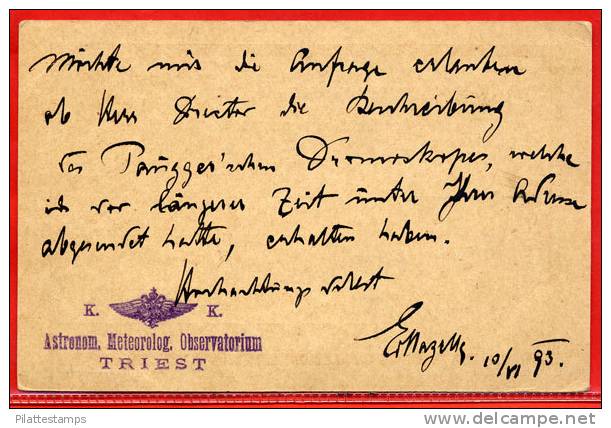 Möchte mir die Anfrage erlauben
ob Herr Director die Beschreibung
des 'schen Dromoskopes, welche
ich vor längerer Zeit unter Ihrer Adresse
abgesendet hatte, erhalten haben.
Hochachtungsvollst
E. Mazelle. 10/VI 93.
K. K.
Astronom. Meteorolog. Observatorium
TRIEST
Pilattestamps
www.delcampe.net